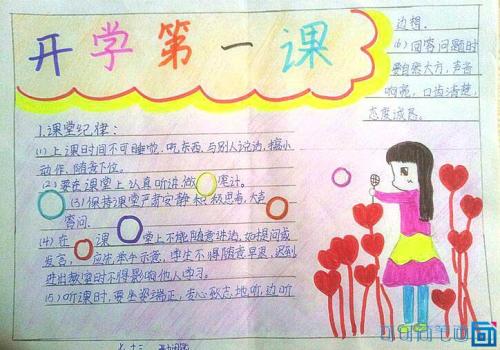 开学第一课
1.课堂纪律:
(1)上课时间不可睡觉.吃东西,与别人说话,搞小
动作,随意下位。
(2)要在课堂上认真听讲,做笔记。
(3)保持课堂严肃安静,积极思考,大声
答问.
(4)在课堂上不能随意讲话,如提问或
发言,应先举手示意,学生不得随意早退,迟到
进出教室时不得影响他人学习。
(5)听课时,要坐姿端正,专心致志地听,边听
边想.
(6)回答问题时
要自然大方,声音
响亮,口齿清楚,
态度诚恳。